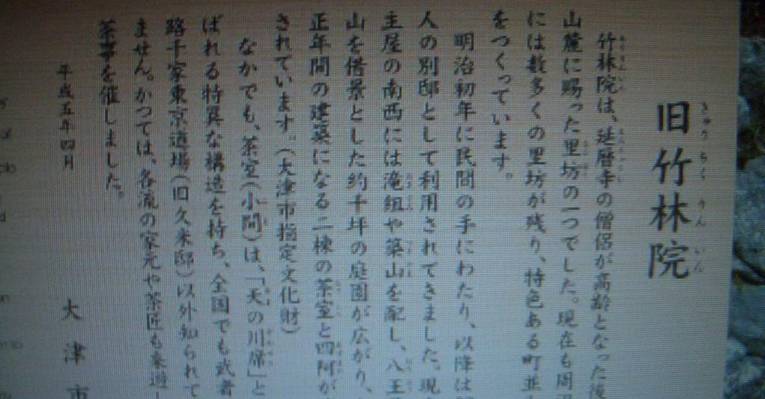 旧竹林院
きゅうちくりんいん
竹林院は、延暦寺の僧侶が高齢となった後
山麓に賜った里坊の一つでした。現在も周辺
には数多くの里坊が残り、特色ある町並
をつくっています。
明治初年に民間の手にわたり、以降は
人の別邸として利用されてきました。現
主屋の南西には滝組や築山を配し、八王
山を借景とした約千坪の庭園が広がり、
正年間の建築になる二棟の茶室と四阿が
されています。(大津市指定文化財)
なかでも、茶室(小間)は、「天の川席」と
ばれる特異な構造を持ち、全国でも武者
路千家東京道場(旧久米邸)以外知られて
ません。かつては、各流の家元や茶匠も来遊し
茶事を催しました。
平成五年四月
大津市